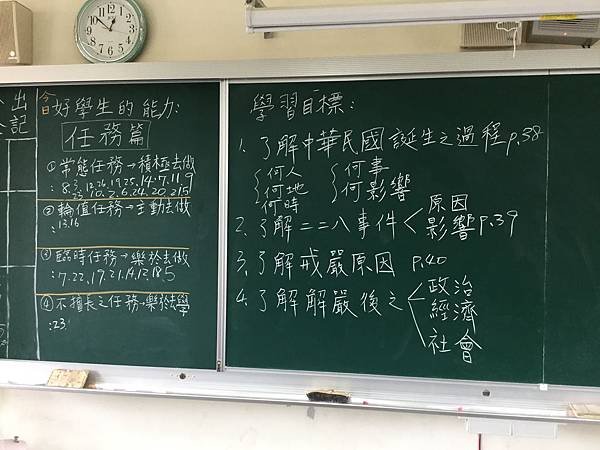 出
記
今日好學生的能力:
任務篇
①常態任務→積極去做
②輪值任務→主動去做
:13.16
③臨時任務→樂於去做
:7.22.19.21.14.12.18.5
④不擅長之任務→樂於去學
:23.
學習目標:
1. 了解中華民國誕生之過程p.38
何人 何事
何地 何影響
何時
2. 了解二二八事件 原因
影響p.39
3. 了解戒嚴原因 p.40
4. 了解解嚴後之 政治
經濟
社會